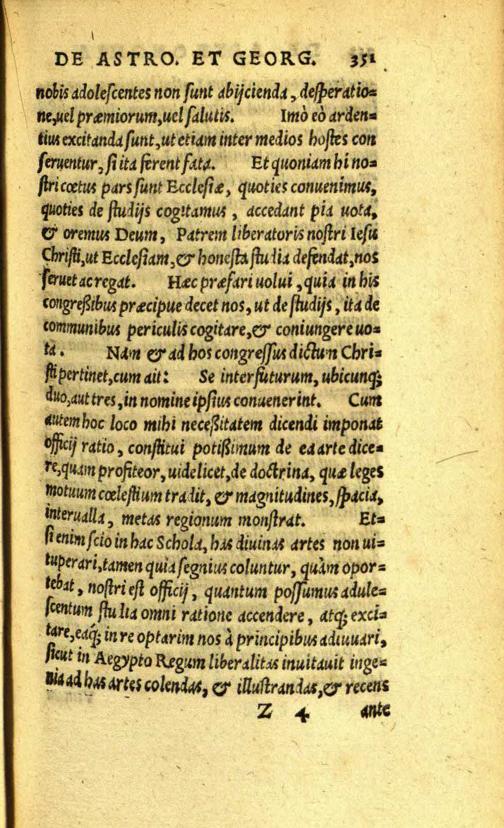 DE ASTRO. ET GEORG. 351
nobis adolescentes non sunt abijcienda, desperatio=
ne, uel præmiorum, uel salutis. Imò eò arden=
tius excitanda sunt, ut etiam inter medios hostes con
seruentur, si ita ferent fata. Et quoniam hi no=
stri cœtus pars sunt Ecclesiæ, quoties conuenimus,
quoties de studijs cogitamus, accedant pia uota,
& oremus Deum, Patrem liberatoris nostri Iesu
Christi, ut Ecclesiam, & honesta studia defendat, nos
seruet ac regat. Hæc præfari uolui, quia in his
congreßibus præcipue decet nos, ut de studijs, ita de
communibus periculis cogitare, & coniungere uo=
ta. Nam & ad hos congressus dictum Chri=
sti pertinet, cum ait: Se interfuturum, ubicunq;
duo, aut tres, in nomine ipsius conuenerint. Cum
autem hoc loco mihi neceßitatem dicendi imponat
officij ratio, constitui potißimum de ea arte dice=
re, quam profiteor, uidelicet, de doctrina, quæ leges
motuum cœlestium tradit, & magnitudines, spacia,
interualla, metas regionum monstrat. Et=
si enim scio in hac Schola, has diuinas artes non ui=
tuperari, tamen quia segnius coluntur, quàm opor=
tebat, nostri est officij, quantum possumus adule=
scentum studia omni ratione accendere, atq; exci=
tare, eaq; in re optarim nos à principibus adiuuari,
sicut in Aegypto Regum liberalitas inuitauit inge=
nia ad has artes colendas, & illustrandas, & recens
Z 4 ante